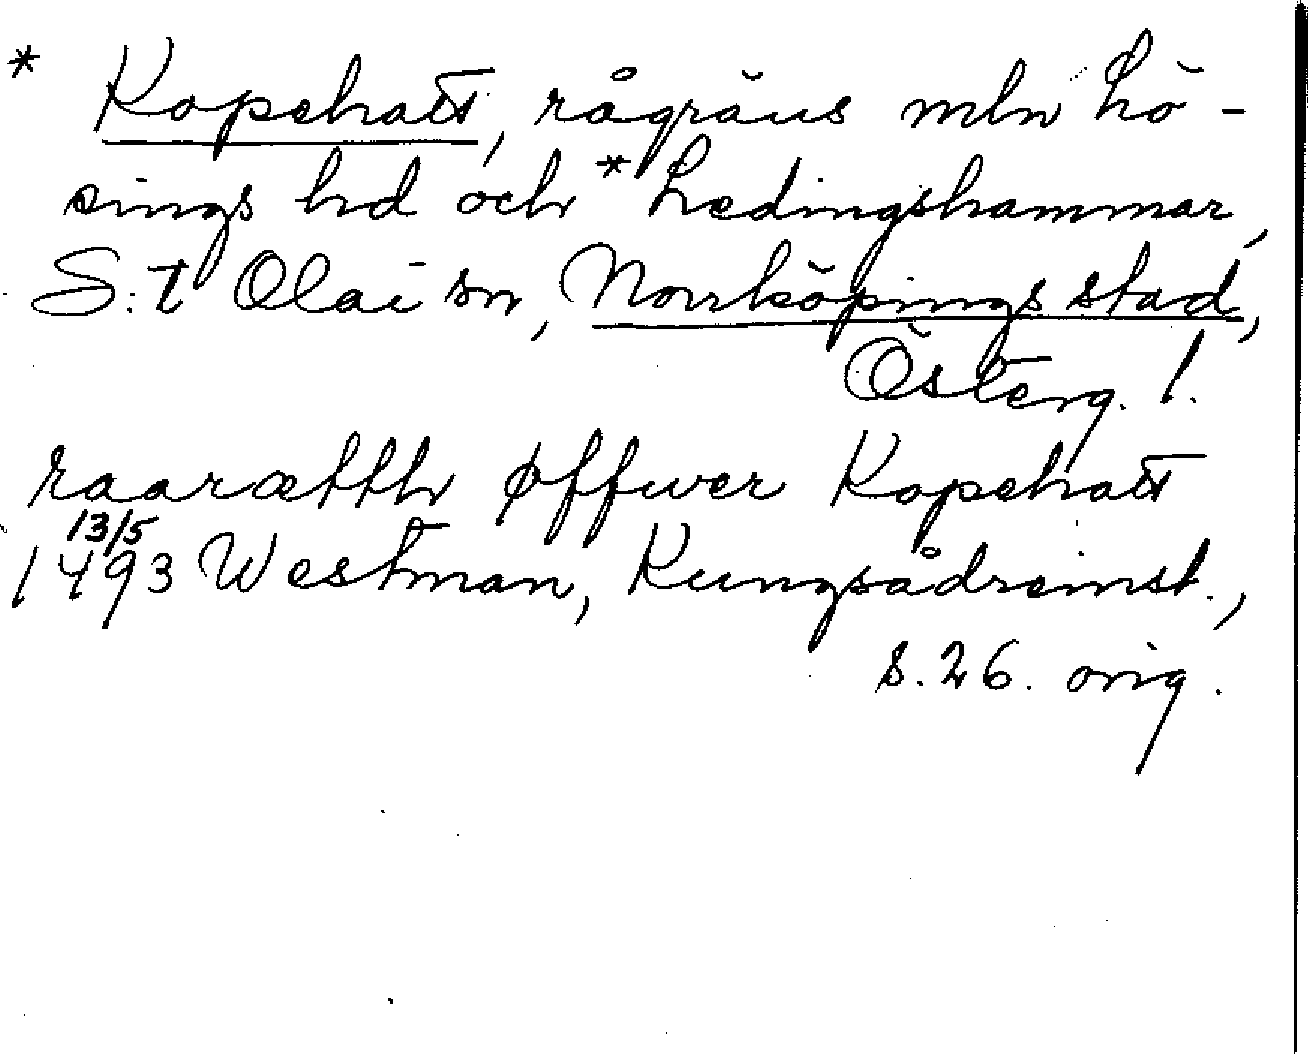 * Kopehatt, rågräns mln Lö-
sings hd och * Ledingshammar,
S:t Olai sn, Norrköpings stad,
Österg. l.
raarættth øffwer Kopehatt
13/5
1493 Westman, Kungsådreinst.,
s. 26. orig.